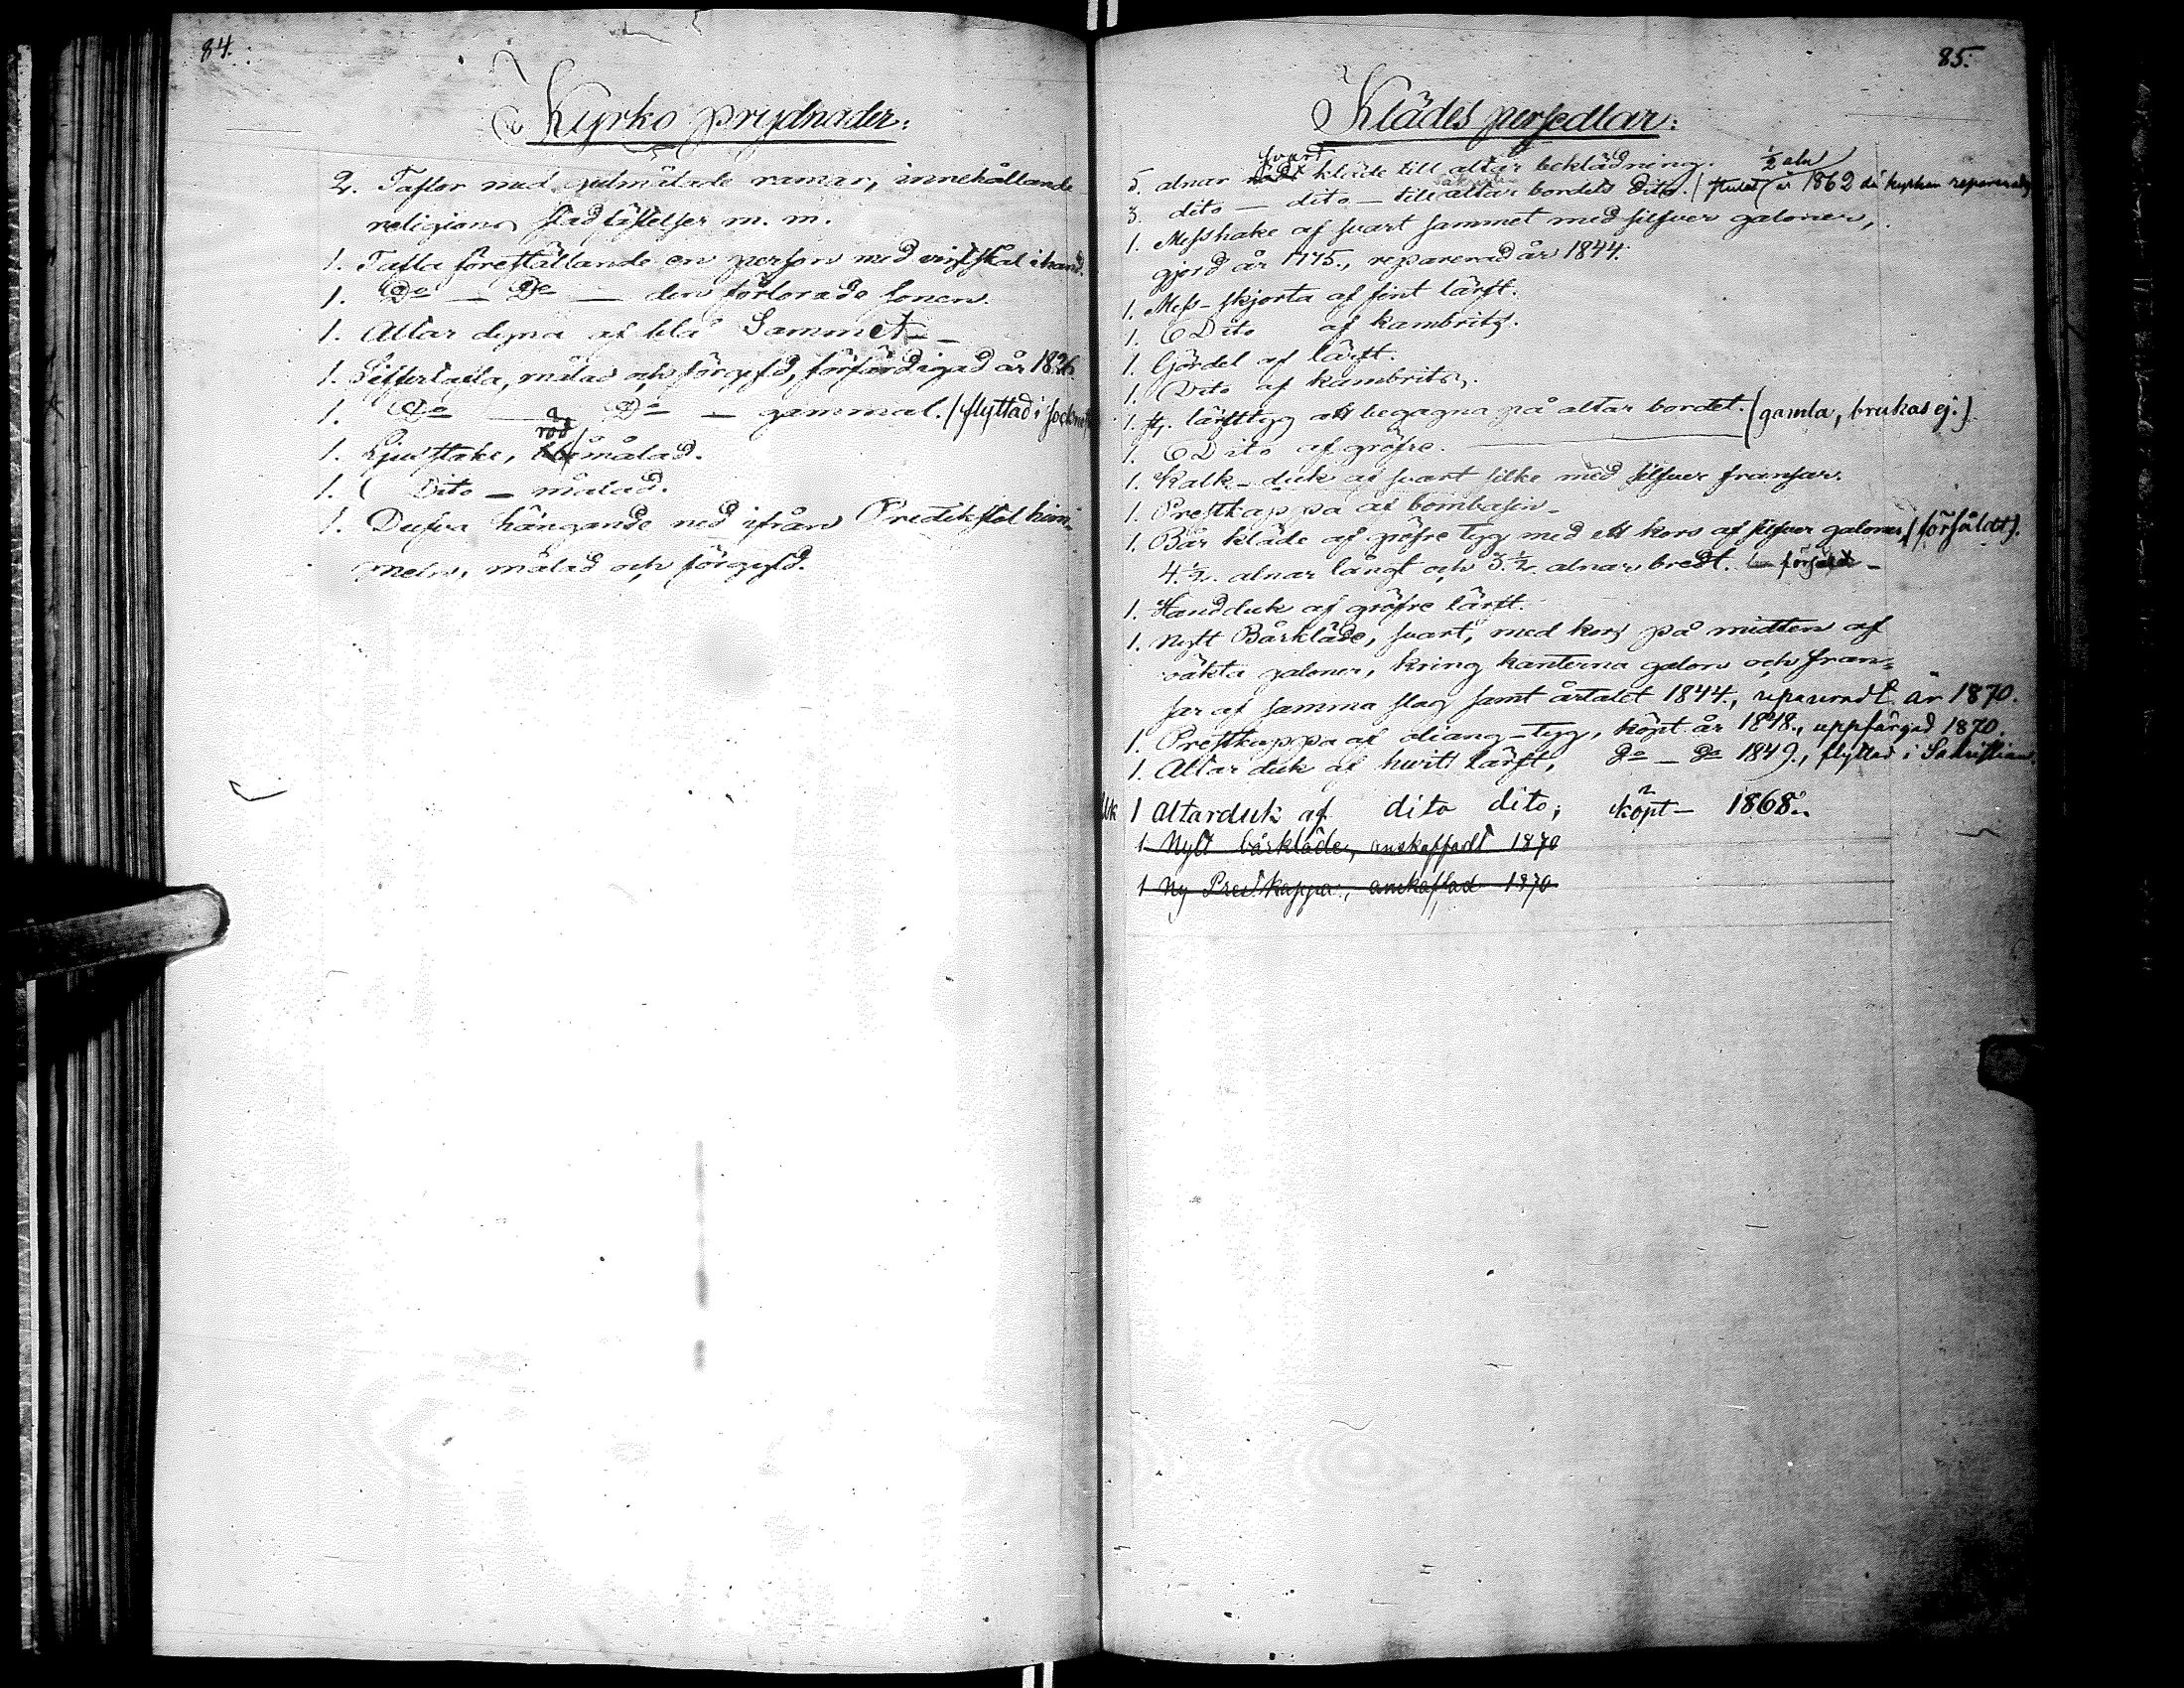 84.
Kyrko prydnader:
2. Taflor med gulmålade ramar, innehållande
religions stadfästelser m. m.
1. Tafla föreställande en person med vinskål i hand.
1. Do — Do — den förlorade sonen.
1. Altar dyna af blå Sammet —
1. Siffertafla, målad och förgyld, förfärdigad år 1826.
1. Do — Do — gammal. (flyttad i
röd
1. Ljusstake, målad.
1. Dito — målad.
1. Dufva hängande ned ifrån Predikstol him-
meln, målad och förgyld.
85.
Klädes persedlar:
svart
5. alnar rödt kläde till altar beklädning. ½ aln
3. dito — dito — till altar bordets dito. (stulet år 1862 då kyrkan reparerades
1. Messhake af svart sammet med silfver galoner,
gjord år 1775., reparerad år 1844.
1. Mess-skjorta af fint lärft.
1. Dito af kambrits.
1. Gördel af lärft.
1. Dito af kambrits.
1. st. lärfttyg att begagna på altar bordet. (gamla, brukas ej.)
1. Dito af gröfre.
1. Kalk-duk af svart silke med silfver fransar.
1. Prestkappa af bombasin —
1. Bår kläde af gröfre tyg med ett kors af silfver galoner, (försåldt).
4.½. alnar långt och 3.½. alnar bredt.
1. Handduk af gröfre lärft.
1. Nytt Bårkläde, svart, med kors på midten af
oäkta galoner, kring kanterna galon och fran-
sar af samma slag samt årtalet 1844., repareradt år 1870.
1. Prestkappa af aliang-tyg, köpt år 1848., uppfärgad 1870.
1. Altar duk af hvitt lärft, do — do 1849., flyttad i Sakristian.
1 Altarduk af dito dito, köpt — 1868.
1 Nytt bårkläde, anskaffadt 1870
1 Ny Prestkappa, anskaffad 1870